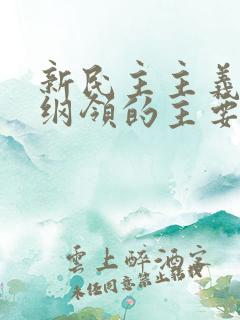 新民主主義
纲領的主要
雲上醉酒客
未经同意禁止转授